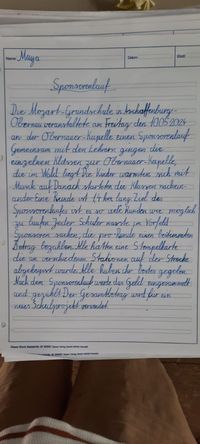 Name: Maya Datum: Blatt:
Sponsorenlauf
Die Mozart-Grundschule in Aschaffenburg-
Obernau veranstaltete am Freitag, den 10.05.2024
an der Obernauer-Kapelle einen Sponsorenlauf.
Gemeinsam mit den Lehrern gingen die
einzelnen Klassen zur Obernauer-Kapelle,
die im Wald liegt. Die Kinder wärmten sich mit
Musik auf. Danach starteten die Klassen nachein-
ander. Eine Runde ist 1,4 km lang. Ziel des
Sponsorenlaufes ist es so viele Runden wie möglich
zu laufen. Jeder Schüler musste im Vorfeld
Sponsoren suchen, die pro Runde einen bestimmten
Betrag bezahlen. Alle hatten eine Stempelkarte
die an verschiedenen Stationen auf der Strecke
abgestempelt wurde. Alle haben ihr Bestes gegeben.
Nach dem Sponsorenlauf wurde das Geld eingesammelt
und gezählt. Der Gesamtbetrag wird für ein
neues Schulprojekt verwendet.